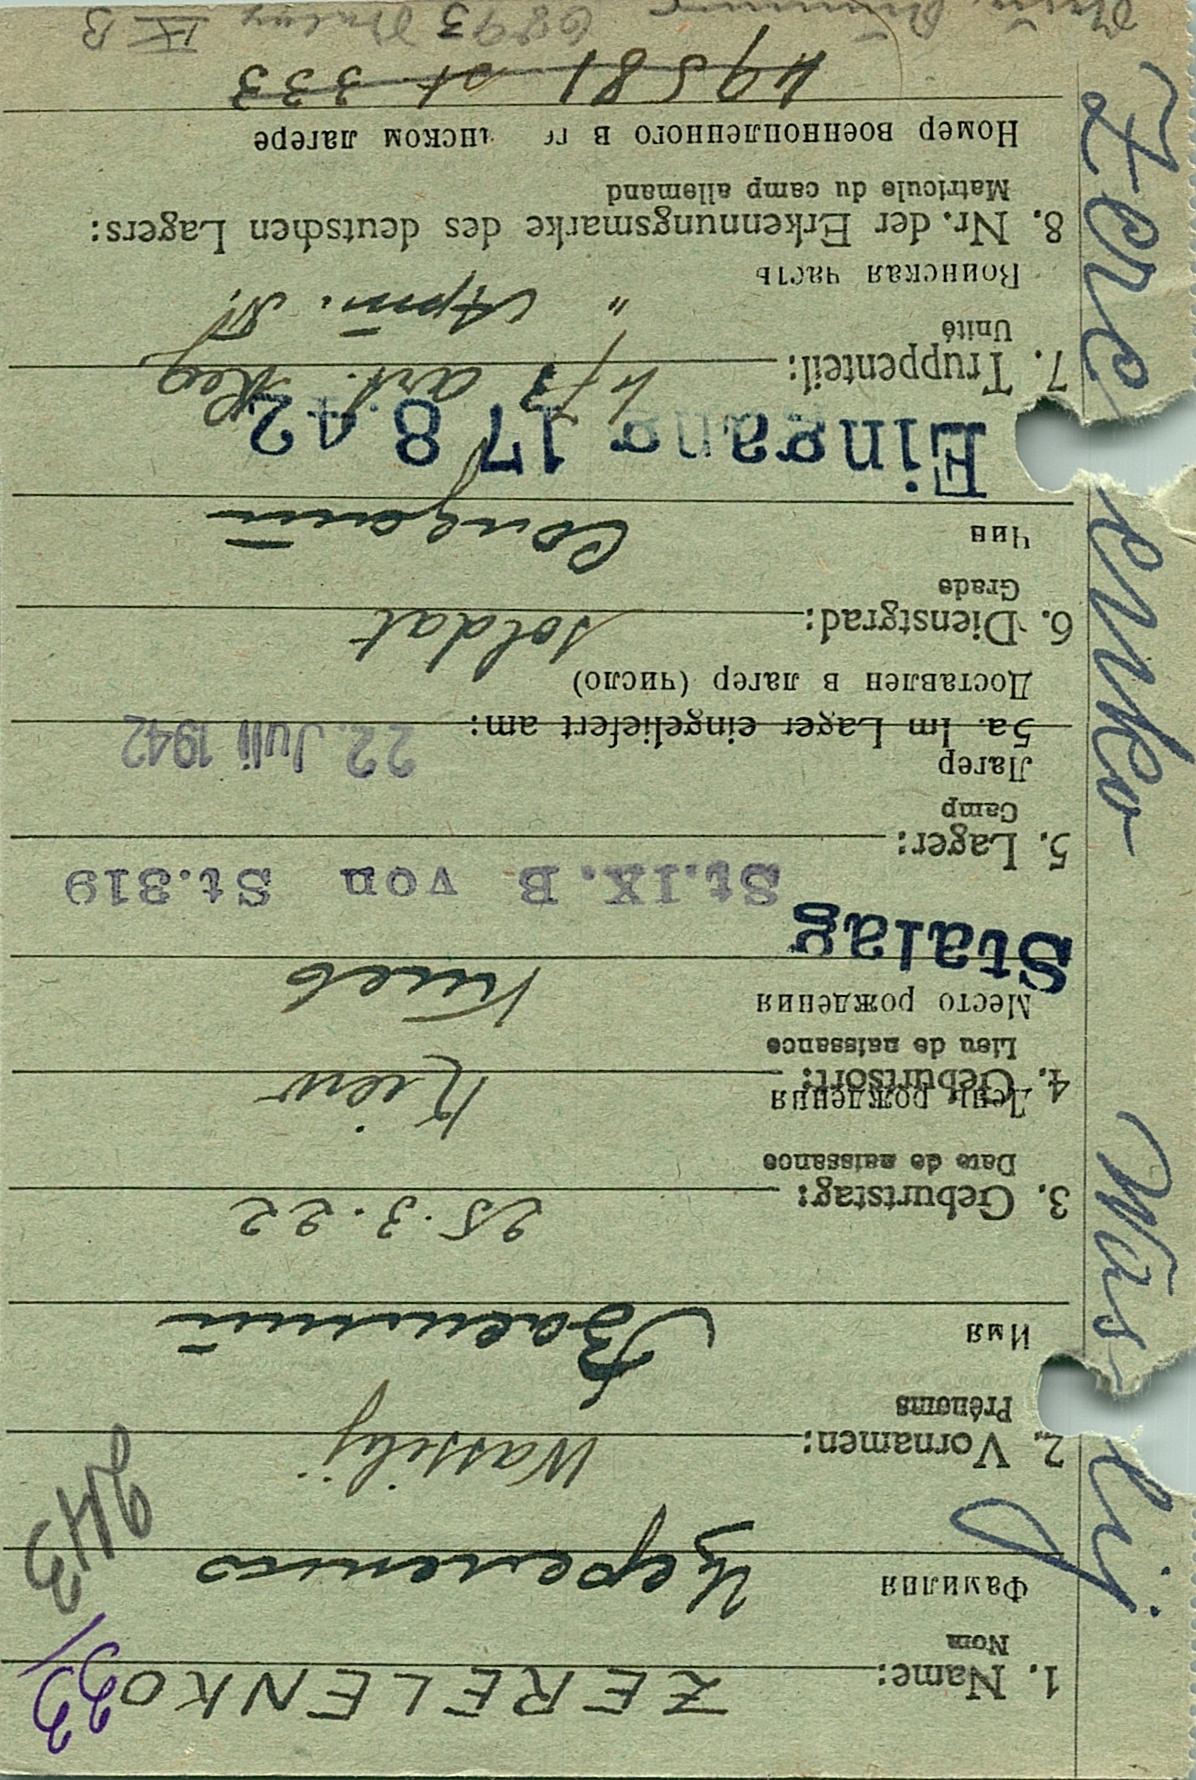 1. Name: ZERELENKO
Nom
Фамилия Цереленко
33/
943
2. Vornamen: Wassilij
Prénoms
Имя Василий
3. Geburtstag: 25.3.22
Date de naissance
День рождения
4. Geburtsort: Kiew
Lieu de naissance
Место рождения Киев
Stalag
St.IX.B von St.319
5. Lager:
Camp
Лагер
5a. Im Lager eingeliefert am: 22. Juli 1942
Доставлен в лагер (число)
6. Dienstgrad: Soldat
Grade
Чин Солдат
Eingang 17 8.42
7. Truppenteil: 4/3 art. Reg.
Unité
Воинская часть " Арт. П.
8. Nr. der Erkennungsmarke des deutschen Lagers:
Matricule du camp allemand
Номер военнопленного в ге нском лагере
49581 St 333
6893 Stalag IX B
Zerelenko Wassilij